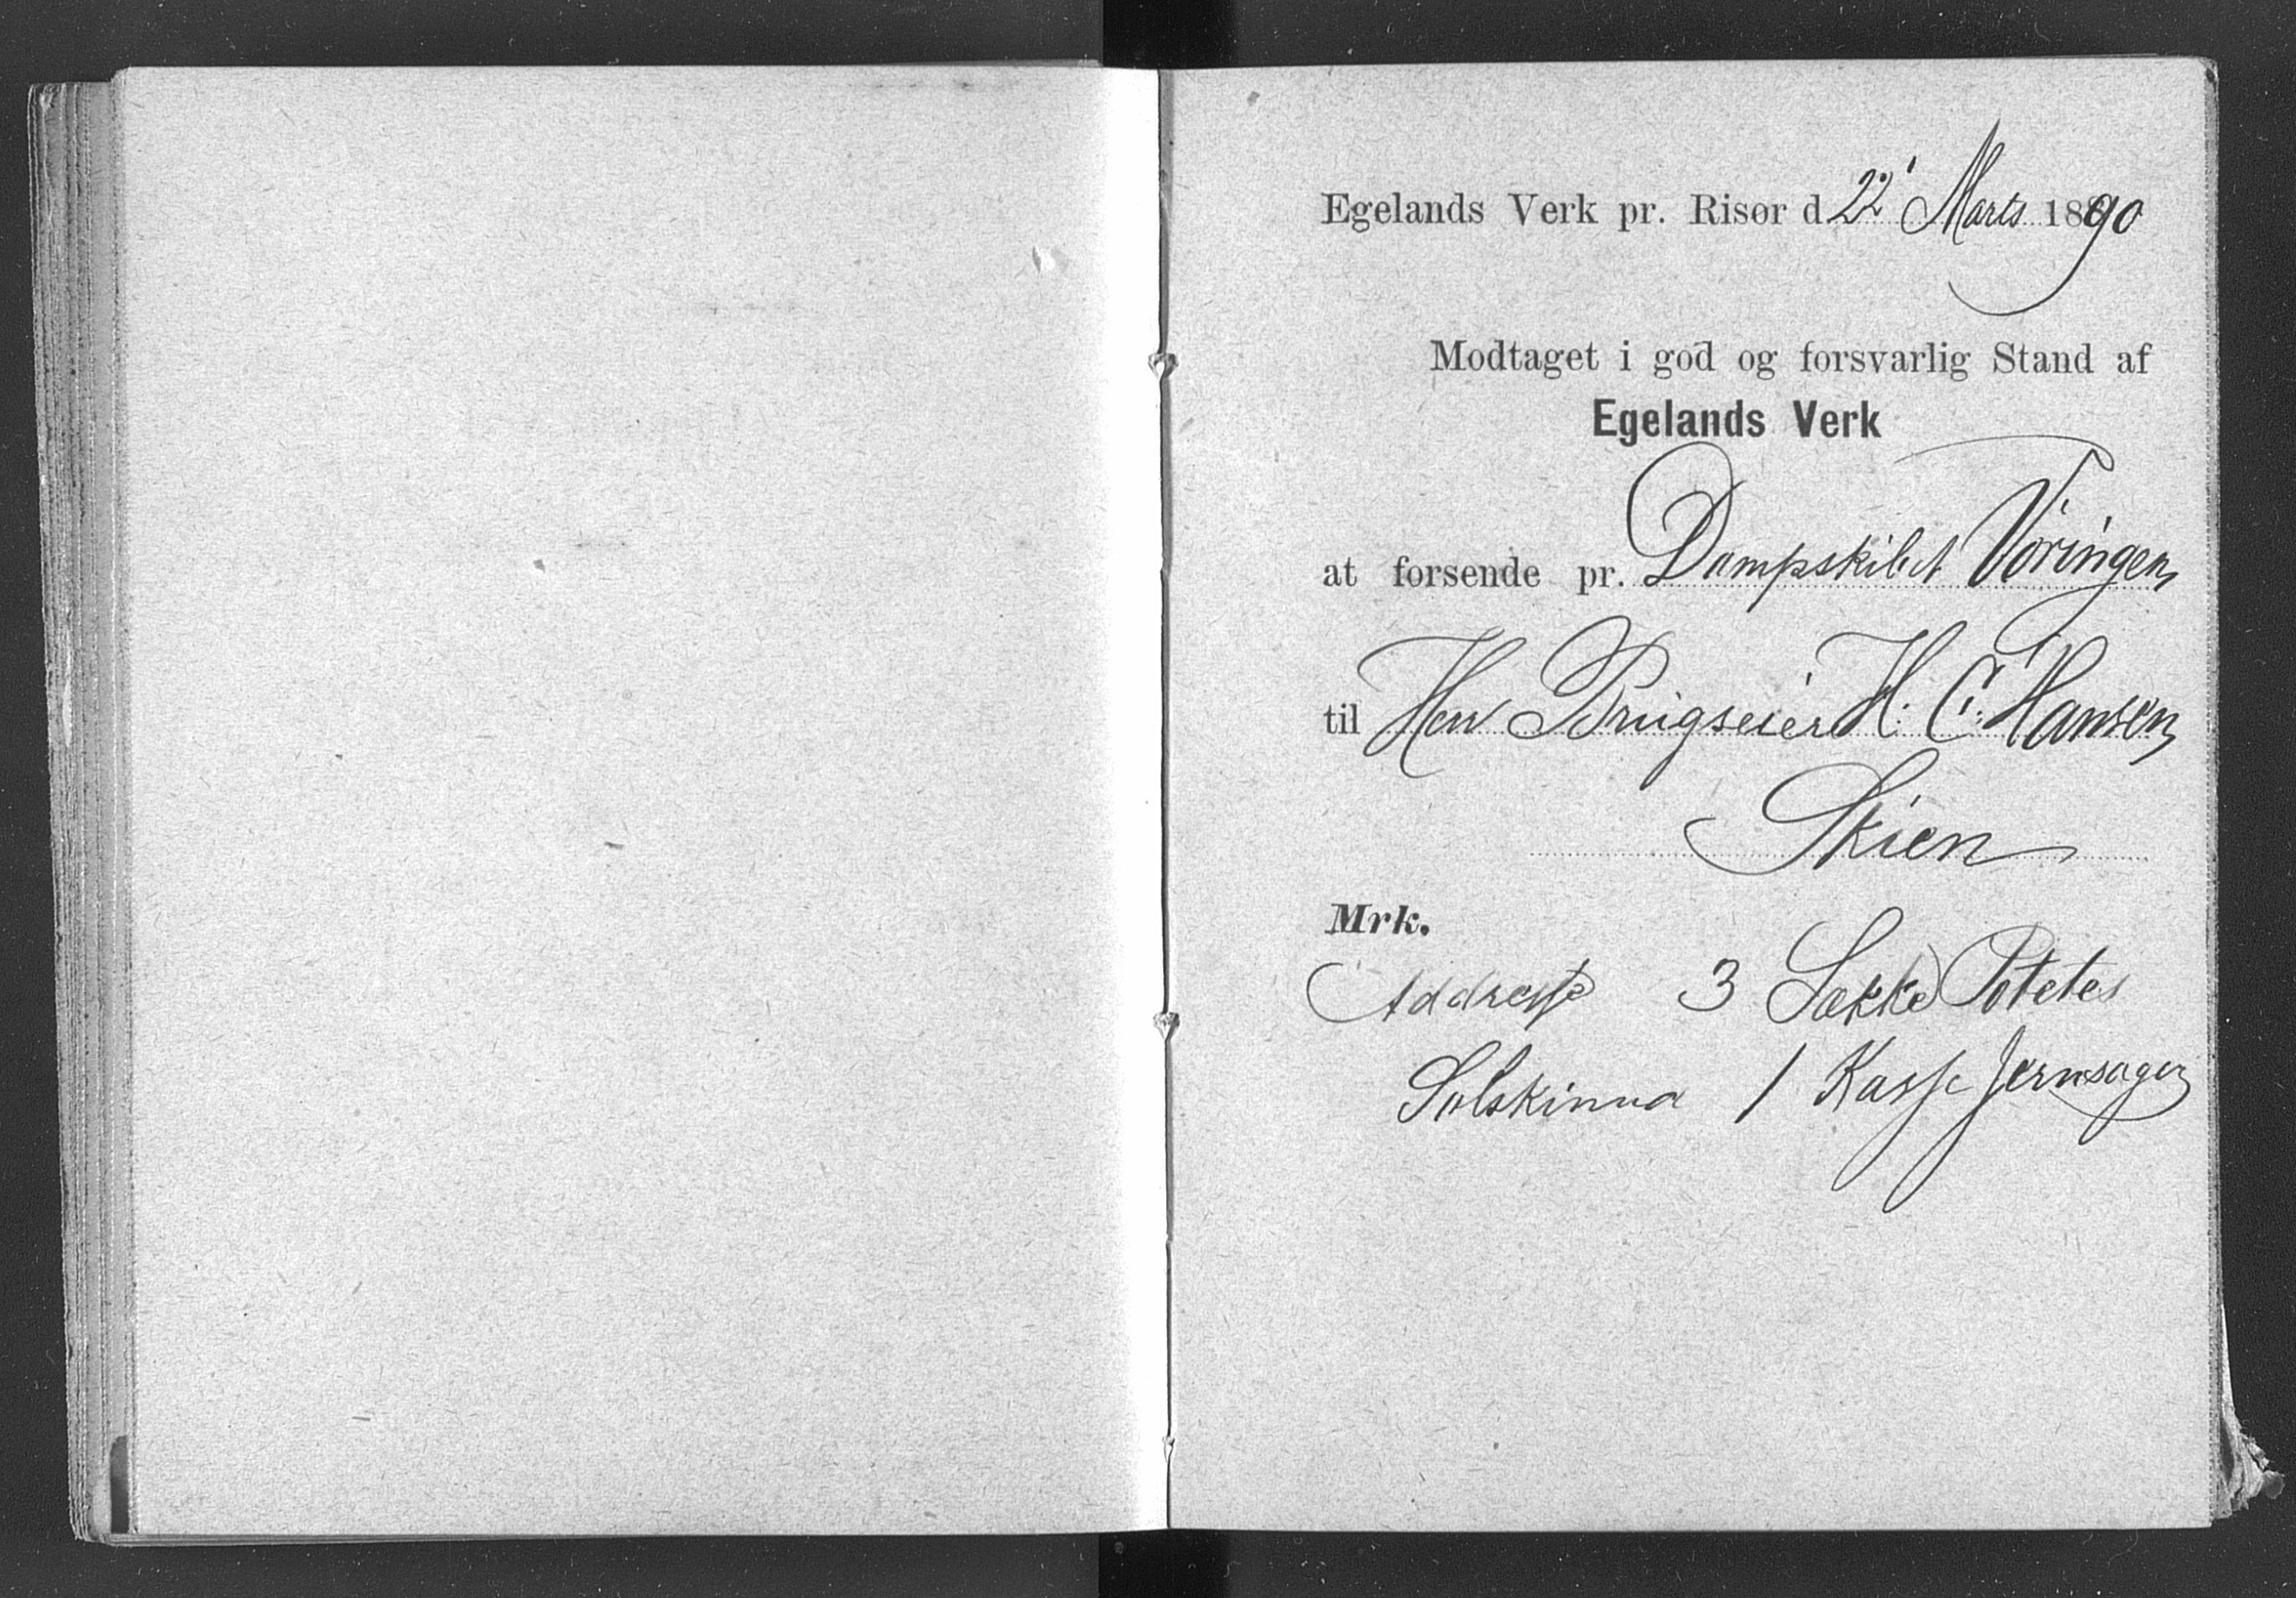 Egelands Verk pr. Risør d. 22' Marts 1890
Modtaget i god og forsvarlig Stand af
Egelands Verk
at forsende pr. Dampskibet Vøringen
til Herr Brugseier H. C. Hansen
Skien
Mrk.
Addresse 3 Sække Potetes
1 Kasse Jernsager